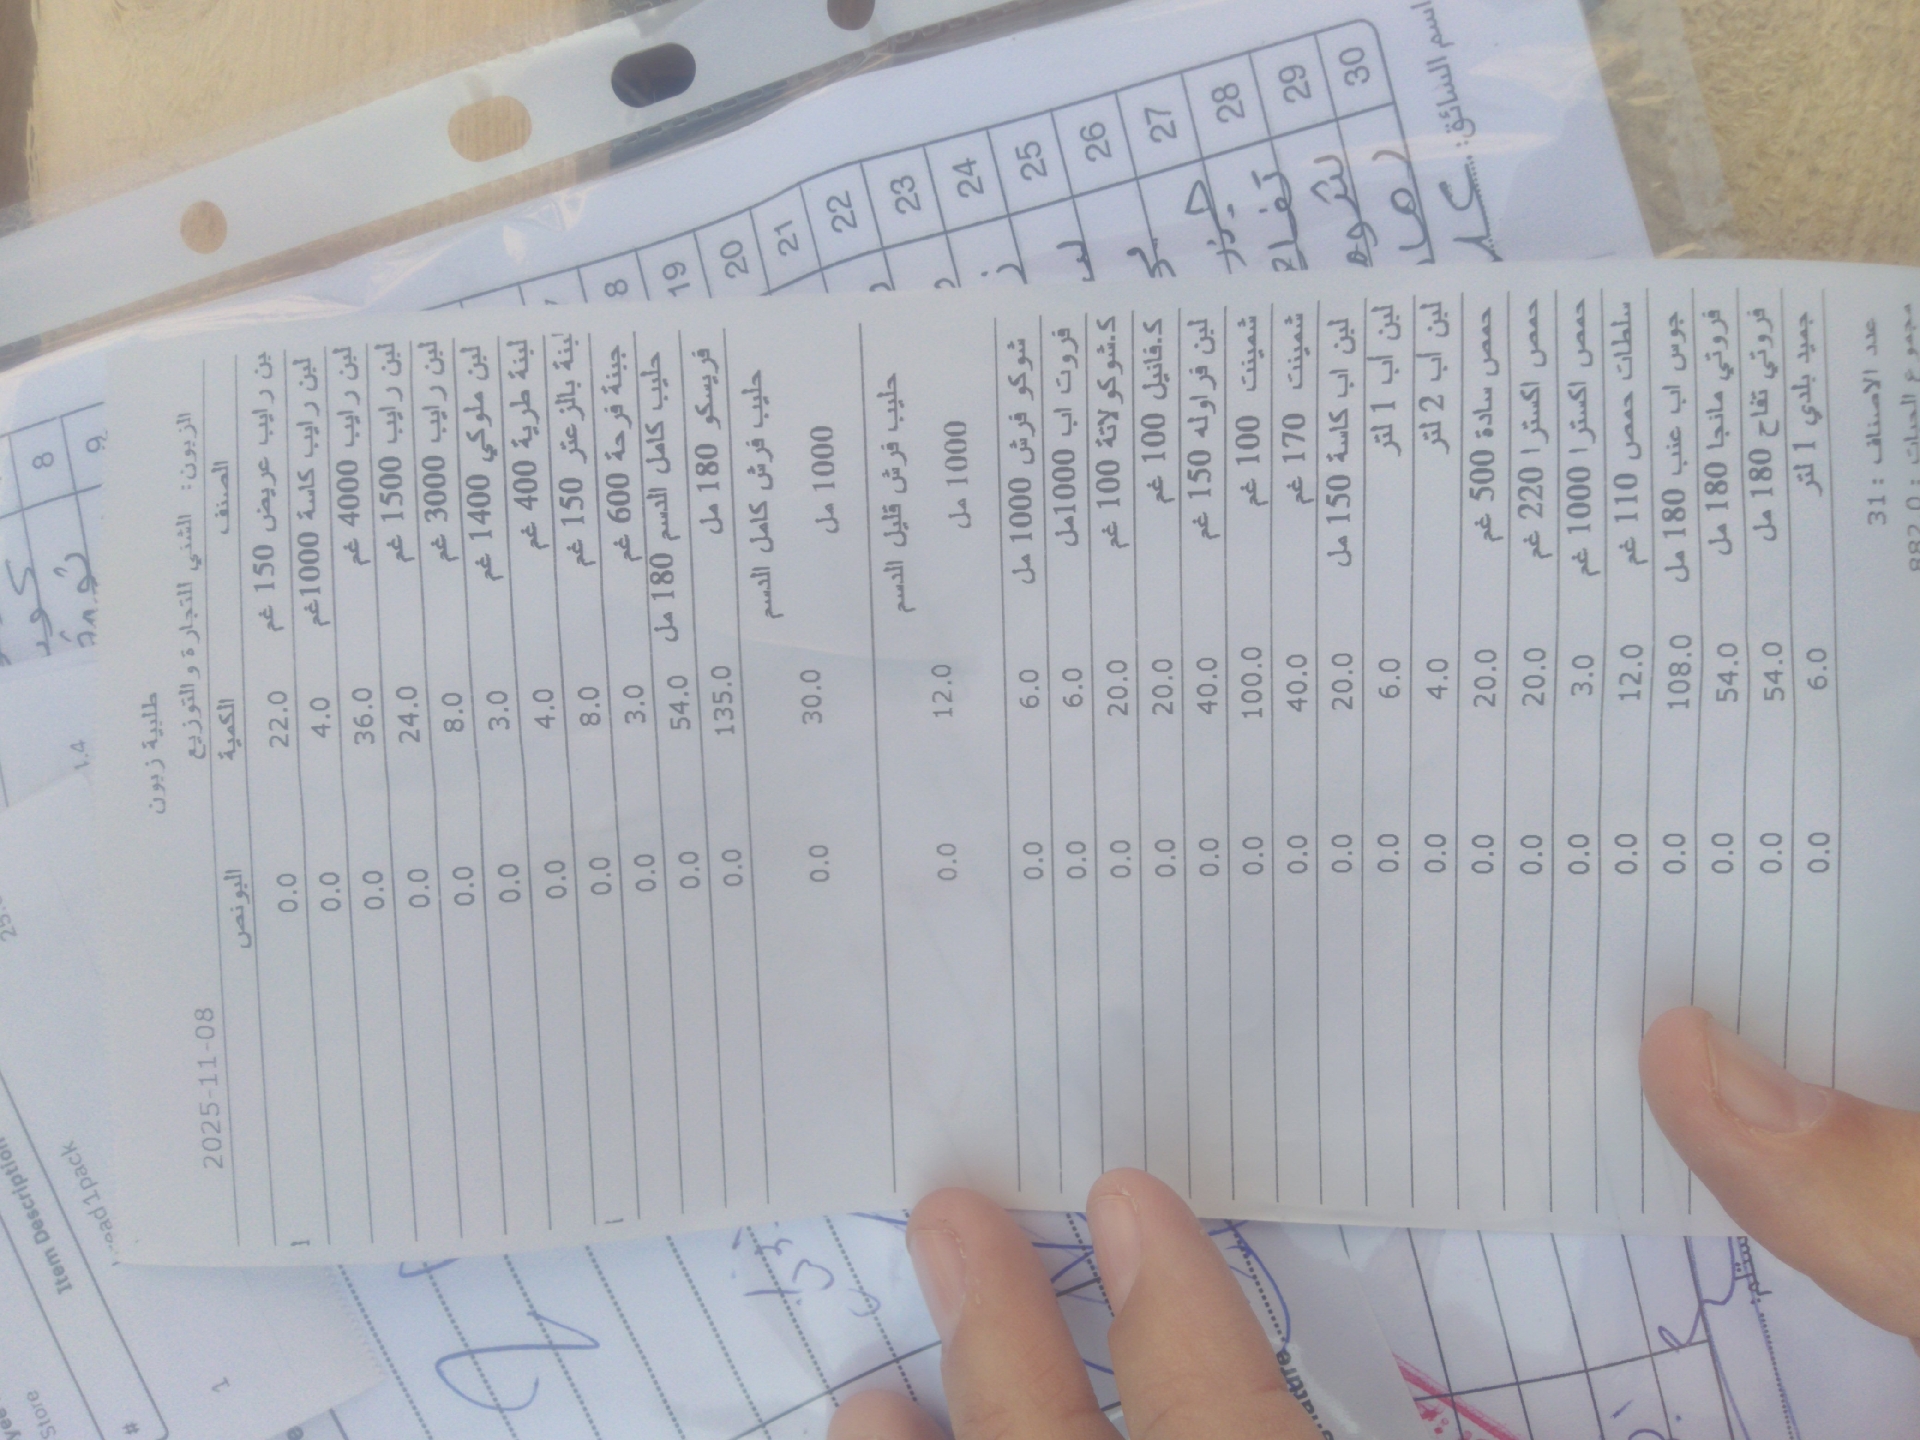 طلبية زبون
الزبون: الشني التجارة و التوزيع 2025-11-08
الصنف الكمية البونص
بن رايب عريض 150 غم 22.0 0.0
لبن رايب كاسة 1000غم 4.0 0.0
لبن رايب 4000 غم 36.0 0.0
لبن رايب 1500 غم 24.0 0.0
لبن رايب 3000 غم 8.0 0.0
لبن ملوكي 1400 غم 3.0 0.0
لبنة طرية 400 غم 4.0 0.0
لبنة بالزعتر 150 غم 8.0 0.0
جبنة فرحة 600 غم 3.0 0.0
حليب كامل الدسم 180 مل 54.0 0.0
فريسكو 180 مل 135.0 0.0
حليب فرش كامل الدسم
1000 مل 30.0 0.0
حليب فرش قليل الدسم
1000 مل 12.0 0.0
شوكو فرش 1000 مل 6.0 0.0
فروت اب 1000مل 6.0 0.0
ك.شوكولاتة 100 غم 20.0 0.0
ك.فانيل 100 غم 20.0 0.0
لبن فراوله 150 غم 40.0 0.0
شمينت 100 غم 100.0 0.0
شمينت 170 غم 40.0 0.0
لبن اب كاسة 150 مل 20.0 0.0
لبن اب 1 لتر 6.0 0.0
لبن اب 2 لتر 4.0 0.0
حمص سادة 500 غم 20.0 0.0
حمص اكسترا 220 غم 20.0 0.0
حمص اكسترا 1000 غم 3.0 0.0
سلطات حمص 110 غم 12.0 0.0
جوس اب عنب 180 مل 108.0 0.0
فروتي مانجا 180 مل 54.0 0.0
فروتي تفاح 180 مل 54.0 0.0
جميد بلدي 1 لتر 6.0 0.0
عدد الاصناف: 31
مجموع الحبات: 882.0
8
9
8
19
20
21
22
23
24
25
26
27
28
29
30
اسم السائق:
Item Description
1pack
Store
#
1.4